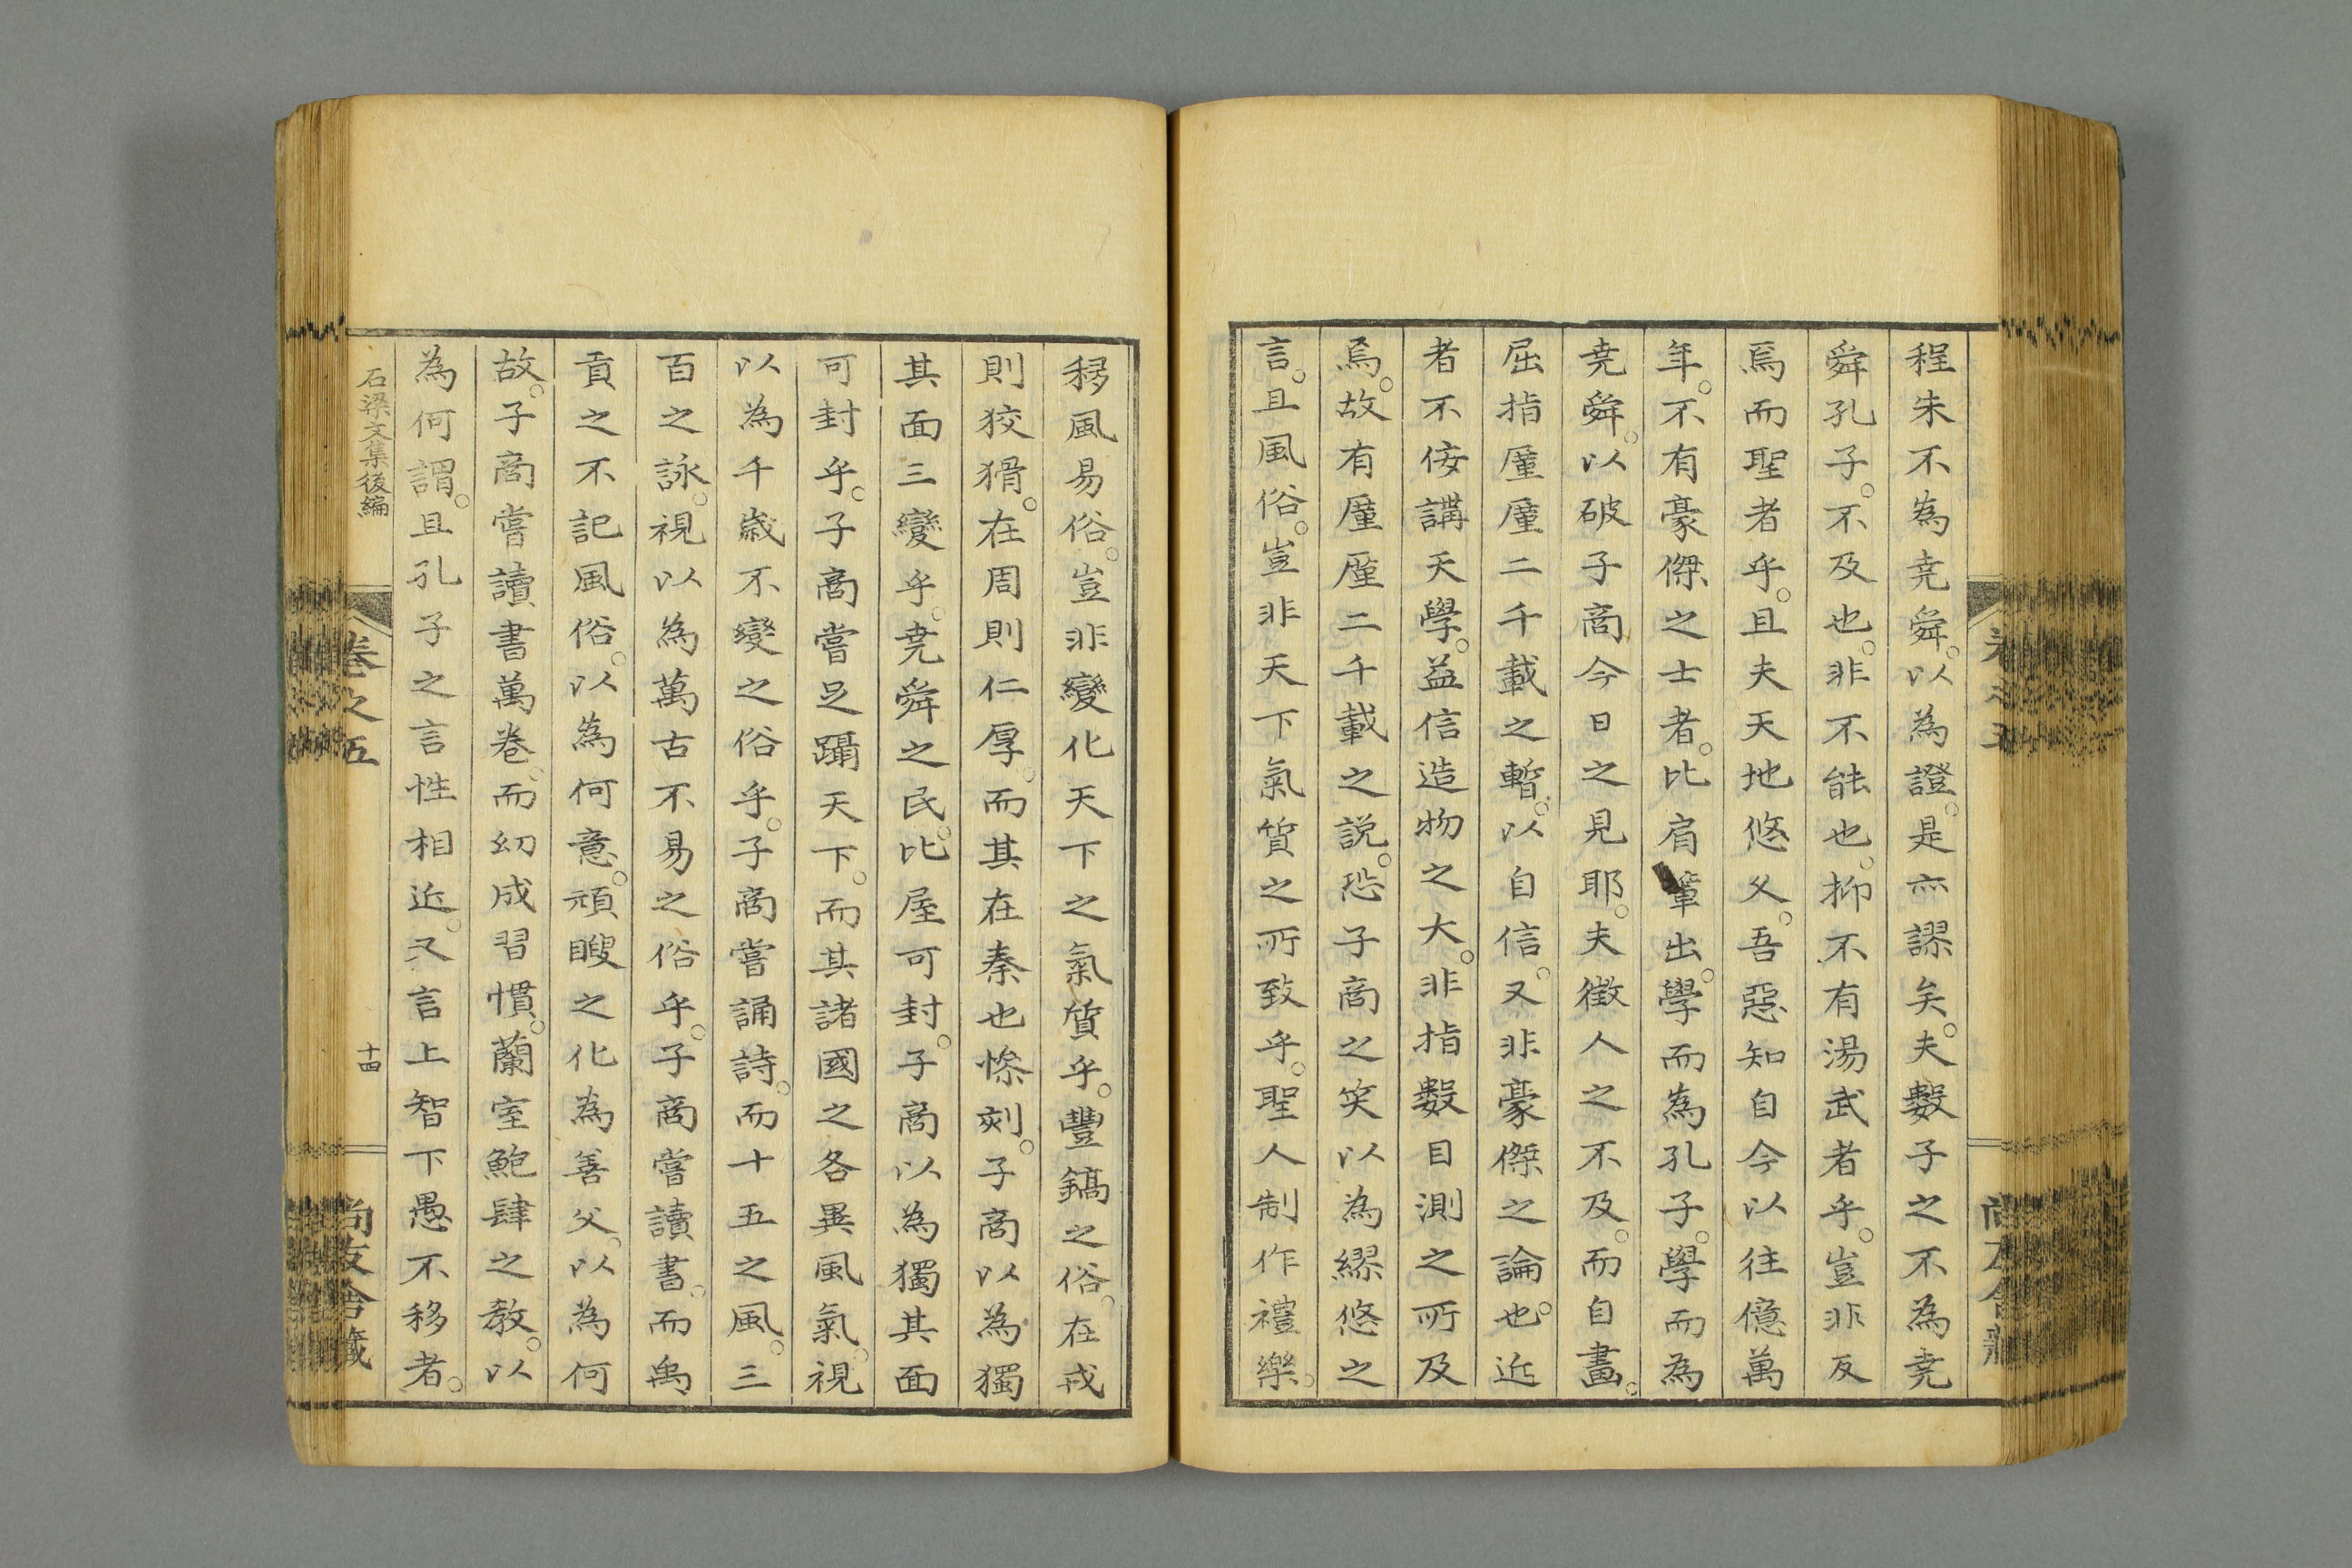 程朱不為尭舜。以為證。是亦謬矣。夫數子之不為尭
舜孔子。不及也。非不能也。抑不有湯武者乎。豈非反
焉而聖者乎。且夫天地悠久。吾惡知自今以往億萬
年。不有豪傑之士者。比肩輩出。學而為孔子。學而為
尭舜。以破子啇今日之見耶。夫徵人之不及。而自畫。
屈指厪厪二千載之暫。以自信。又非豪傑之論也。近
者不佞講天學。益信造物之大。非指數目測之所及
焉。故有厪厪二千載之説。恐子啇之笑以為繆悠之
言。且風俗。豈非天下氣質之所致乎。聖人制作禮樂。
移風易俗。豈非變化天下之氣質乎。豐鎬之俗。在戎
則狡猾。在周則仁厚。而其在秦也惨刻。子啇以為獨
其面三變乎。尭舜之民。比屋可封。子啇以為獨其面
可封乎。子啇嘗足躡天下。而其諸國之各異風氣。視
以為千歳不變之俗乎。子啇嘗誦詩。而十五之風。三
百之詠。視以為萬古不易之俗乎。子啇嘗讀書。而禹
貢之不記風俗。以為何意。頑瞍之化為善父。以為何
故。子啇嘗讀書萬卷。而幼成習慣。蘭室鮑肆之教。以
為何謂。且孔子之言性相近。又言上智下愚不移者。
石梁文集後編
卷之五
十四
尚友舎藏